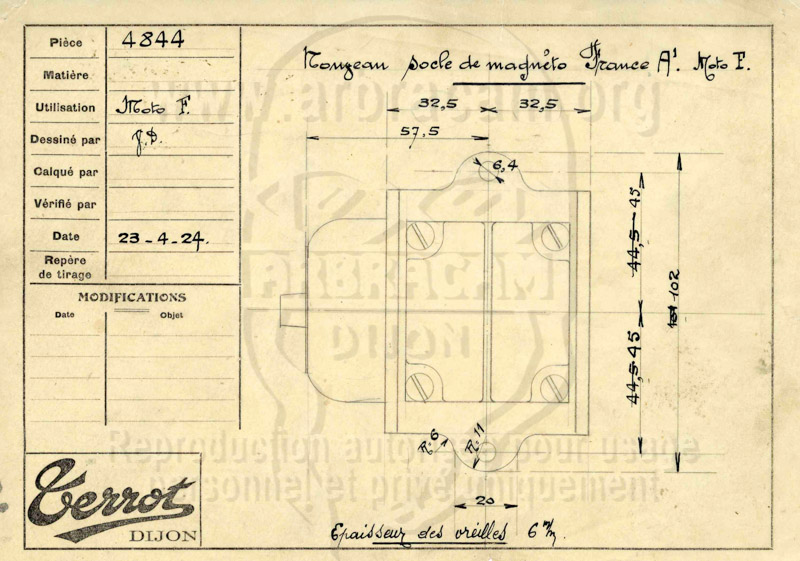 Pièce 4844
Matière
Utilisation Moto F.
Dessiné par J.D.
Calqué par
Vérifié par
Date 23-4-24.
Repère
de tirage
MODIFICATIONS
Date Objet
Terrot
DIJON
Nouveau socle de magnéto France A¹. Moto F.
32,5 32,5
57,5
6,4
44,5 45
101 102
44,5 45
R:6 R:11
20
Epaisseur des oreilles 6 m/m.
www.arbracam.org
ARBRACAM
DIJON
Reproduction autorisée pour usage
personnel et privé uniquement